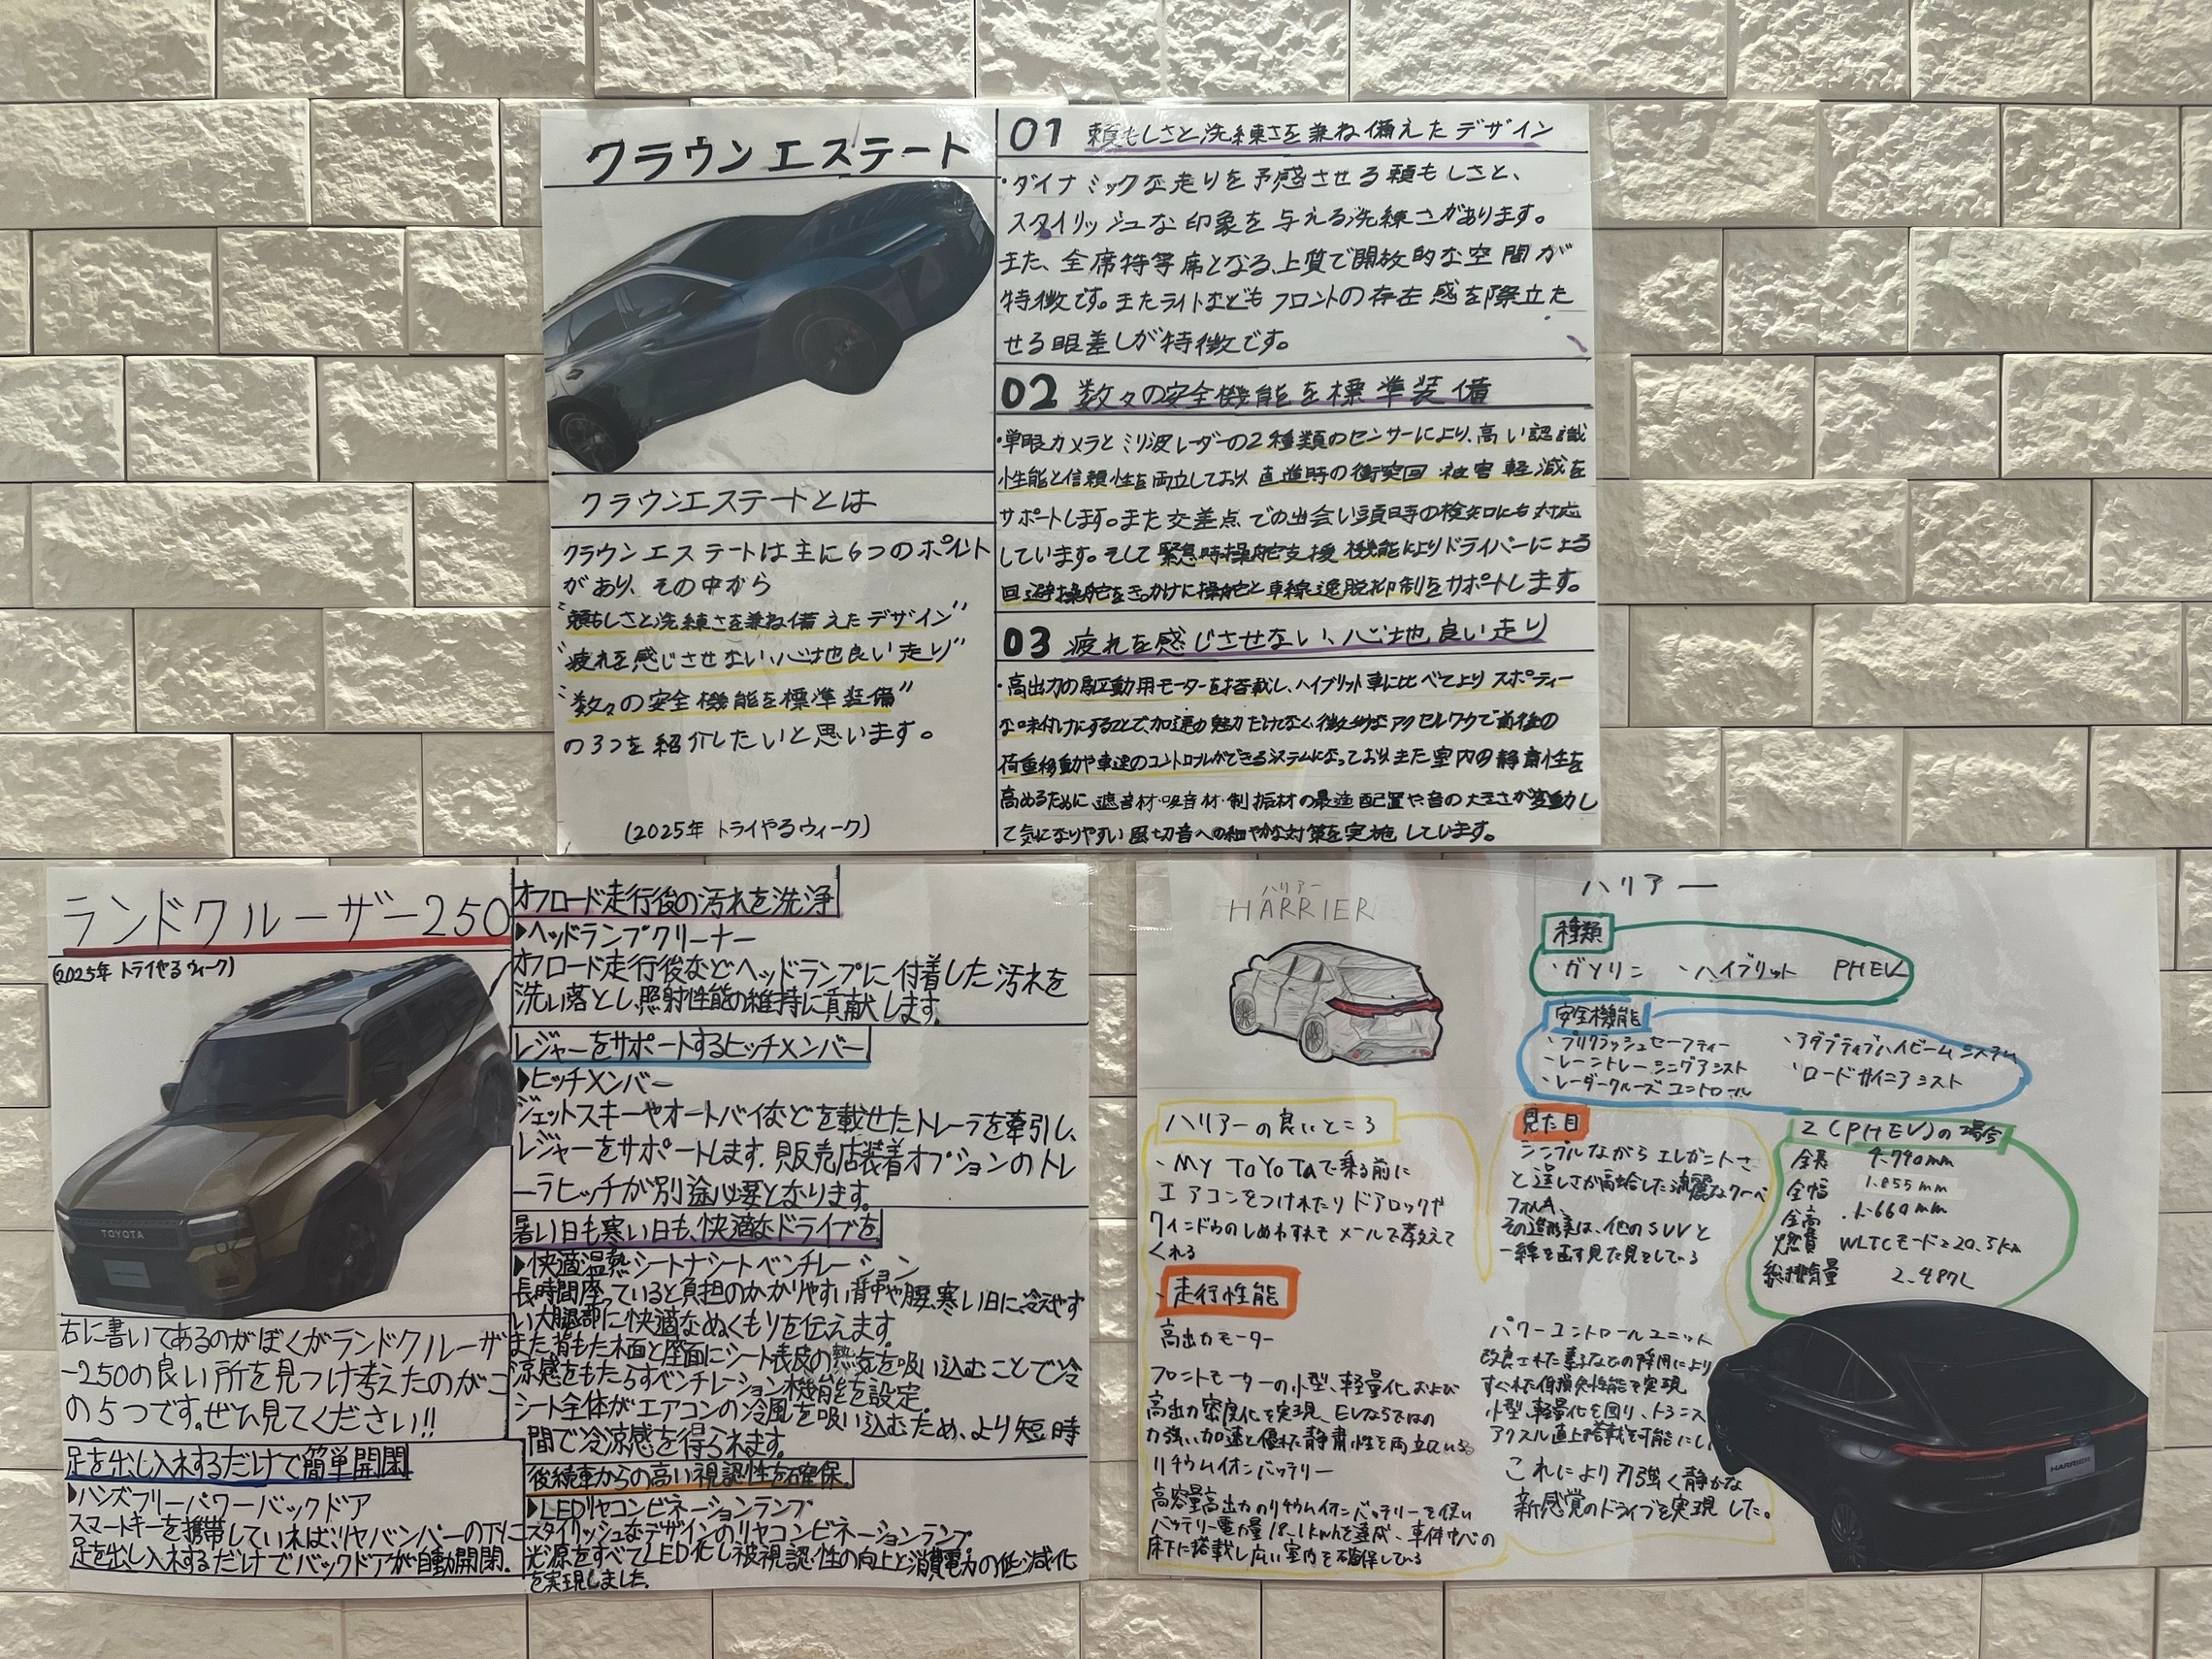 クラウンエステート
クラウンエステートとは
クラウンエステートは主に6つのポイント
があり、その中から
"頼もしさと洗練さを兼ね備えたデザイン"
"疲れを感じさせない、心地良い走り"
"数々の安全機能を標準装備"
の3つを紹介したいと思います。
(2025年 トライやるウィーク)
01 頼もしさと洗練さを兼ね備えたデザイン
・ダイナミックな走りを予感させる頼もしさと、
スタイリッシュな印象を与える洗練さがあります。
また、全席特等席となる、上質で開放的な空間が
特徴です。またライトなどもフロントの存在感を際立た
せる眼差しが特徴です。
02 数々の安全機能を標準装備
・単眼カメラとミリ波レーダーの2種類のセンサーにより、高い認識
性能と信頼性を両立しており 直進時の衝突回 被害軽減を
サポートします。また交差点での出会い頭時の検知にも対応
しています。そして緊急時操舵支援機能によりドライバーによる
回避操舵をきっかけに操舵と車線逸脱抑制をサポートします。
03 疲れを感じさせない、心地良い走り
・高出力の駆動用モーターを搭載し、ハイブリット車に比べてよりスポーティー
な味付けにすることで、加速の魅力だけでなく、微妙なアクセルワークで前後の
荷重移動や車速のコントロールができるシステムになっておりまた室内の静粛性を
高めるために、遮音材・吸音材・制振材の最適配置や、音の大きさが変動し
て気になりやすい風切音への細やかな対策を実施しています。
ランドクルーザー250
(2025年 トライやるウィーク)
TOYOTA
右に書いてあるのがぼくがランドクルーザ
ー250の良い所を見つけ考えたのがこ
の5つです。ぜひ見てください!!
足を出し入れするだけで簡単開閉
▶ハンズフリーパワーバックドア
スマートキーを携帯していれば、リヤバンパーの下に
足を出し入れするだけでバックドアが自動開閉。
オフロード走行後の汚れを洗浄
▶ヘッドランプクリーナー
オフロード走行後などヘッドランプに付着した汚れを
洗い落とし、照射性能の維持に貢献します。
レジャーをサポートするヒッチメンバー
▶ヒッチメンバー
ジェットスキーやオートバイなどを載せたトレーラを牽引し、
レジャーをサポートします。販売店装着オプションのトレ
ーラヒッチが別途必要となります。
暑い日も寒い日も、快適なドライブを
▶快適温熱シートナシートベンチレーション
長時間座っていると負担のかかりやすい背中や腰、寒い日に冷えやす
い大腿部に快適なぬくもりを伝えます。
また背もたれ面と座面にシート表皮の熱気を吸い込むことで冷
涼感をもたらすベンチレーション機能を設定。
シート全体がエアコンの冷風を吸い込むため、より短時
間で冷涼感を得られます。
後続車からの高い視認性を確保。
▶LEDリヤコンビネーションランプ
スタイリッシュなデザインのリヤコンビネーションランプ
光源をすべてLED化し被視認性の向上と消費電力の低減化
を実現しました。
ハリアー
HARRIER
ハリアーの良いところ
・MY TOYOTAで乗る前に
エアコンをつけれたりドアロックや
ウィンドウのしめわすれもメールで教えて
くれる
・走行性能
高出力モーター
フロントモーターの小型、軽量化および
高出力密度化を実現、EVならではの
力強い加速と優れた静粛性を両立している
リチウムイオンバッテリー
高容量高出力のリチウムイオンバッテリーを使い
バッテリー電力量18.1kwhを達成、車体中心の
床下に搭載し広い室内を確保している
ハリアー
種類
・ガソリン ・ハイブリット PHEV
安全機能
・プリクラッシュセーフティー
・レーントレーシングアシスト
・レーダークルーズコントロール
・アダプティブハイビームシステム
・ロードサインアシスト
見た目
シンプルながらエレガントさ
と逞しさが融合した流麗なクーペ
フォルム
その造形美は、他のSUVと
一線を画す見た目をしている
Z(PHEV)の場合
全長 4.740mm
全幅 1.855mm
全高 1.660mm
燃費 WLTCモード=20.5km
総排気量 2.487L
パワーコントロールユニット
改良された素子などの採用により
すぐれた低損失性能を実現
小型、軽量化を図り、トランス
アクスル直上搭載を可能にし
これにより力強く静かな
新感覚のドライブを実現した。
HARRIER